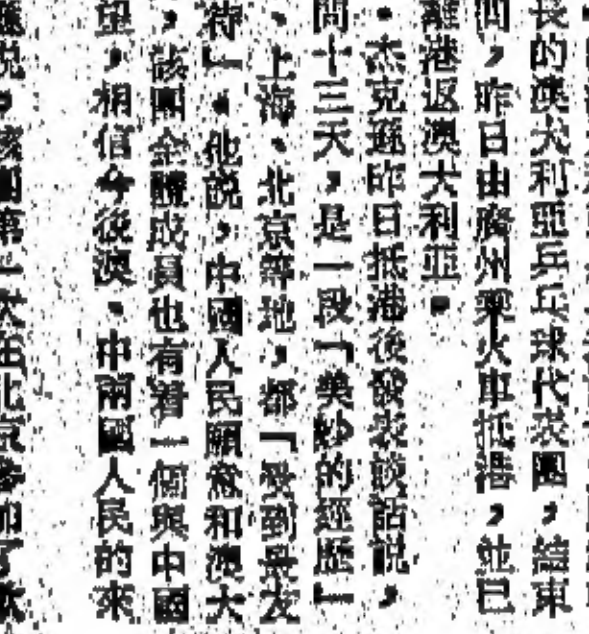 長的澳大利亞乒乓球代表團,結束
問,昨日由廣州乘火車抵港,並已
離港返澳大利亞。
杰克遜昨日抵港後發表談話說,
問十三天,是一段「美妙的經歷」
。上海、北京等地,都「受到吳友
待」。他說,中國人民願意和澳大
,該團全體成員也有着一個與中國
望,相信今後澳、中兩國人民的來
說,該團第一次在北京參加了